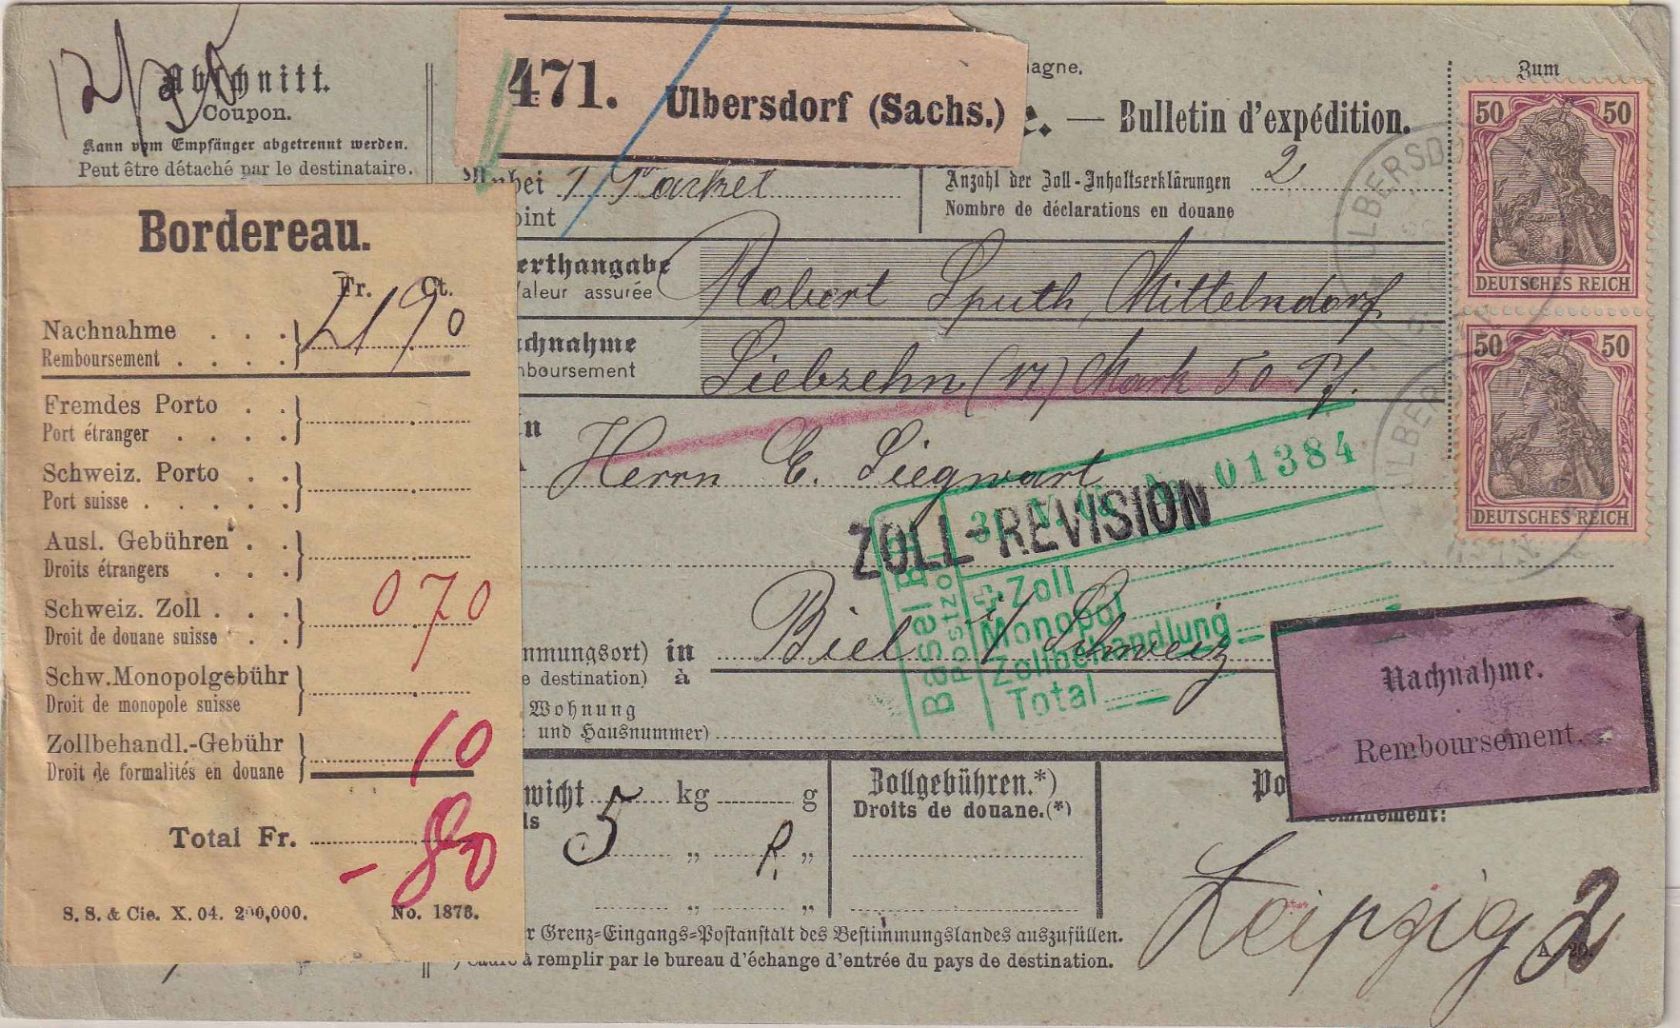 Abschnitt.
Coupon.
Kann vom Empfänger abgetrennt werden.
Peut être détaché par le destinataire.
471. Ulbersdorf (Sachs.)
agne.
e. — Bulletin d'expédition.
Zum
Anbei 1 Packet
oint
Anzahl der Zoll-Inhaltserklärungen 2
Nombre de déclarations en douane
50 50
DEUTSCHES REICH
50 50
DEUTSCHES REICH
erthangabe
Valeur assurée
Robert Puth, Mittelndorf
chnahme
mboursement
Siebzehn (17) Mark 50 Pf.
An
Herrn E. Siegwart
No 01384
ZOLL-REVISION
Basel
Postzo
Zoll
Monopol
Zollbehandlung
Total
mmungsort) in
e destination) à
Biel i/ Schweiz
Wohnung
und Hausnummer)
Nachnahme.
Remboursement.
Bordereau.
Fr. Ct.
Nachnahme
Remboursement
21 90
Fremdes Porto
Port étranger
Schweiz. Porto
Port suisse
Ausl. Gebühren
Droits étrangers
Schweiz. Zoll
Droit de douane suisse
0 70
Schw. Monopolgebühr
Droit de monopole suisse
Zollbehandl.-Gebühr
Droit de formalités en douane
10
Total Fr.
- 80
S. S. & Cie. X. 04. 200,000. No. 1878.
wicht kg g
ds
5 „ P. „
„ „
Zollgebühren.*)
Droits de douane.(*)
Po
eminement:
Leipzig 2
r Grenz-Eingangs-Postanstalt des Bestimmungslandes auszufüllen.
à remplir par le bureau d'échange d'entrée du pays de destination.